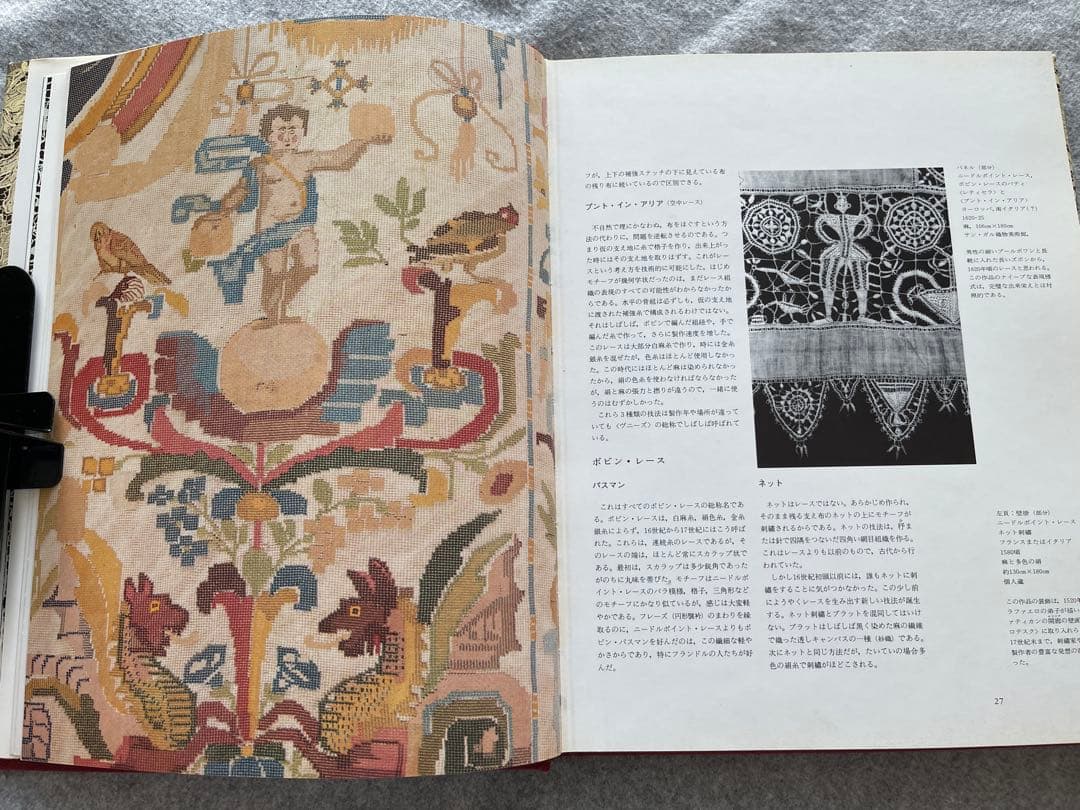 フが、上下の補強ステッチの下に見えている布
の残り布に続いているので区別できる。
プント・イン・アリア（空中レース）
不自然で理にかなわぬ、布をほぐすという方
法の代わりに、問題を逆転させるのである。つ
まり仮の支え地に糸で格子を作り、出来上がっ
た時にはその支え地を取りはずす。これがレー
スという考え方を技術的に可能にした。はじめ
モチーフが幾何学状だったのは、まだレース組
織の表現のすべての可能性がわからなかったか
らである。水平の骨組は必ずしも、仮の支え地
に渡された補強糸で構成されるわけではない。
それはしばしば、ボビンで編んだ組紐や、手で
編んだ糸で作って、さらに製作速度を増した。
このレースは大部分白麻糸で作り、時には金糸
銀糸を混ぜたが、色糸はほとんど使用しなかっ
た。この時代にはほとんど麻は染められなかっ
たから、絹の色糸を使わなければならなかった
が、絹と麻の張力と撚りが違うので、一緒に使
うのはむずかしかった。
これら3種類の技法は製作年や場所が違って
いても〈ヴニーズ〉の総称でしばしば呼ばれて
いる。
ボビン・レース
パスマン
これはすべてのボビン・レースの総称名であ
る。ボビン・レースは、白麻糸、絹色糸、金糸
銀糸によらず、16世紀から17世紀にはこう呼ば
れた。これらは、連続糸のレースであるが、そ
のレースの端は、ほとんど常にスカラップ状で
ある。最初は、スカラップは多少鋭角であった
がのちに丸味を帯びた。モチーフはニードルポ
イント・レースのバラ模様、格子、三角形など
のモチーフにかなり似ているが、感じは大変軽
やかである。フレーズ（円形襞衿）のまわりを縁
取るのに、ニードルポイント・レースよりもボ
ビン・パスマンを好んだのは、この繊細な軽や
かさからであり、特にフランドルの人たちが好
んだ。
パネル（部分）
ニードルポイント・レース、
ボビン・レースのパティ
〈レティセラ〉と
〈プント・イン・アリア〉
ヨーロッパ、南イタリア(?)
1620-25
麻、106cm×180cm
サン・ガル織物美術館、
男性の細いプールポワンと長
靴に入れた長いズボンから、
1620年頃のレースと思われる。
この作品のナイーブな表現様
式は、完璧な出来栄えとは対
照的である。
ネット
ネットはレースではない。あらかじめ作られ、
そのまま残る支え布のネットの上にモチーフが
刺繡されるからである。ネットの技法は、杼ま
たは針で四隅をつないだ四角い網目組織を作る。
これはレースよりも以前のもので、古代から行
われていた。
しかし16世紀初頭以前には、誰もネットに刺
繡をすることに気がつかなかった。この少し前
にようやくレースを生み出す新しい技法が誕生
する。ネット刺繡とブラットを混同してはいけ
ない。ブラットはしばしば黒く染めた麻の繊維
で織った透しキャンバスの一種（紗織）である。
次にネットと同じ方法だが、たいていの場合多
色の絹糸で刺繡がほどこされる。
左頁：壁掛（部分）
ニードルポイント・レース
ネット刺繡
フランスまたはイタリア
1580頃
麻と多色の絹
約130cm×180cm
個人蔵
この作品の装飾は、1520年
ラファエロの弟子が描い
ァティカンの開廊の壁画
ロテスク〉に取り入れら
17世紀末まで、刺繡家や
製作者の豊富な発想の
った。
27